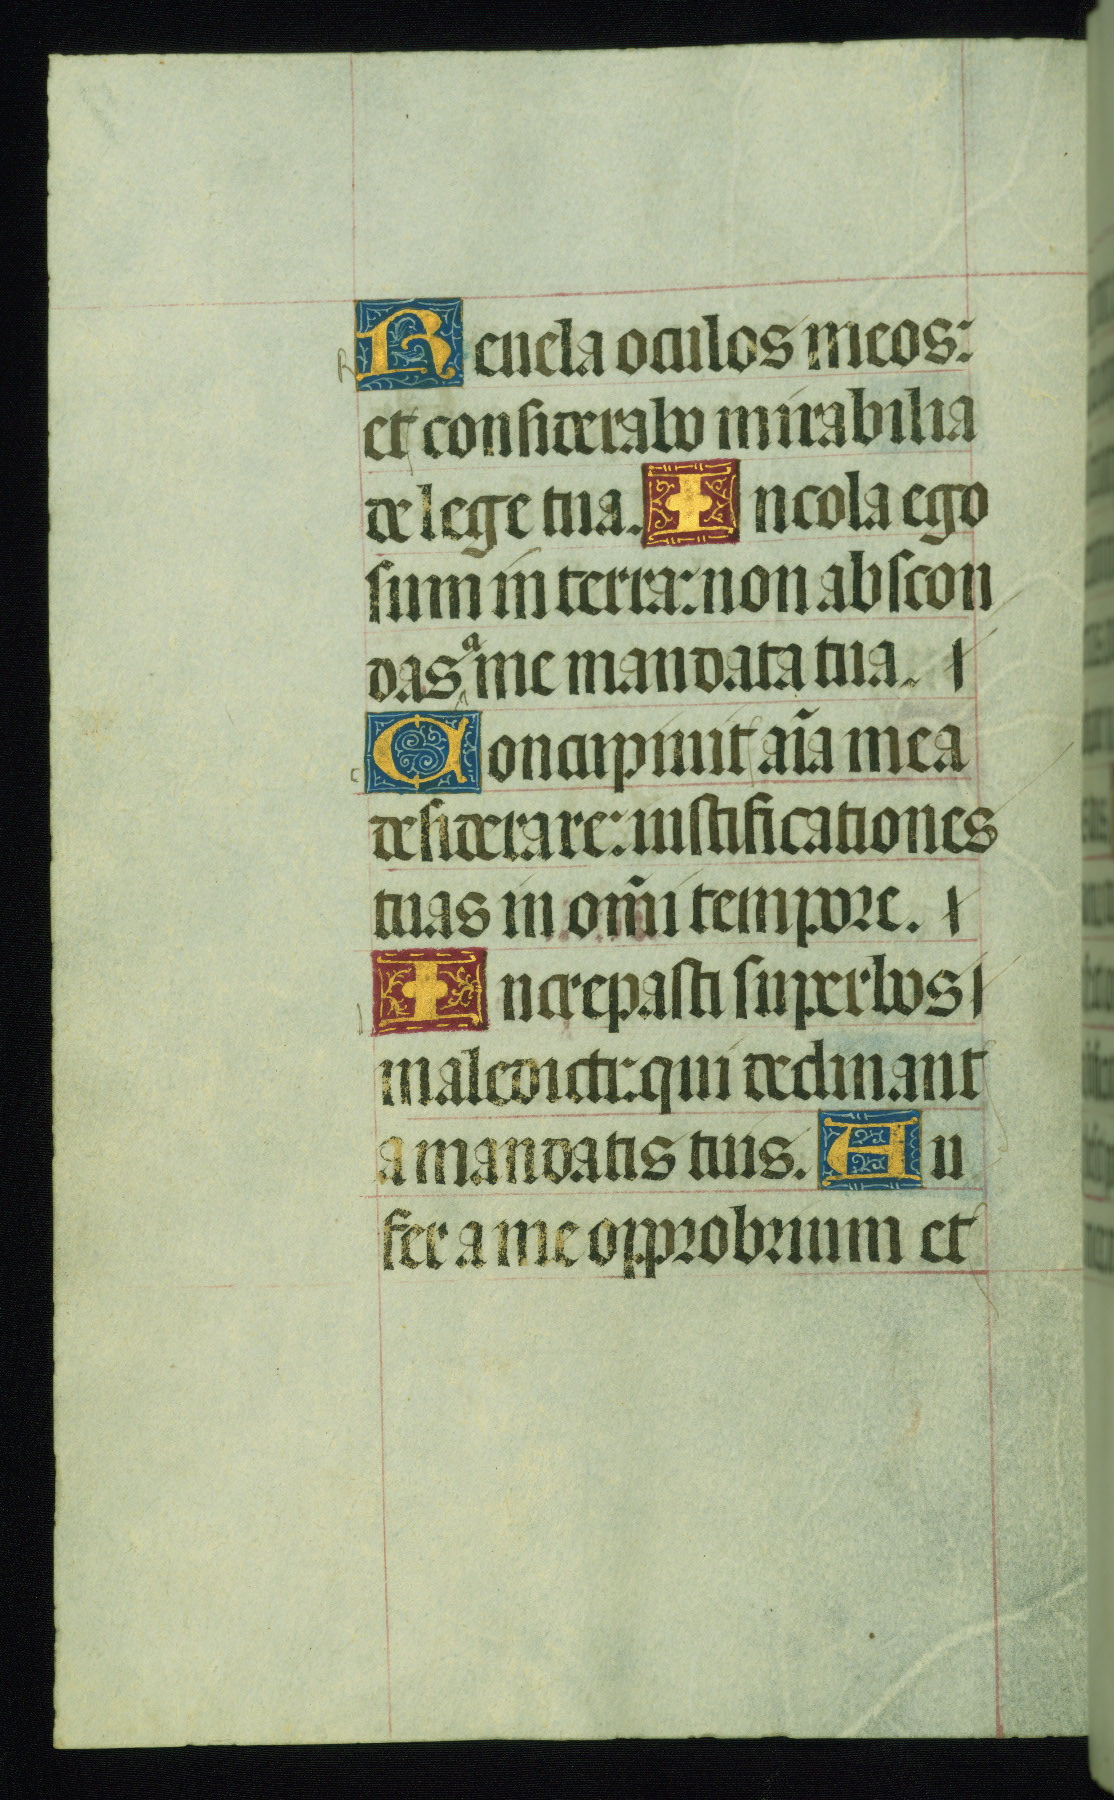 Reuela oculos meos:
et considerabo mirabilia
de lege tua. Incola ego
sum in terra: non abscon
das a me mandata tua.
Concupiuit aīa mea
desiderare: iustificationes
tuas in om̄i tempore.
Increpasti superbos
maledicti: qui declinant
a mandatis tuis. Au
fer a me opprobrium et